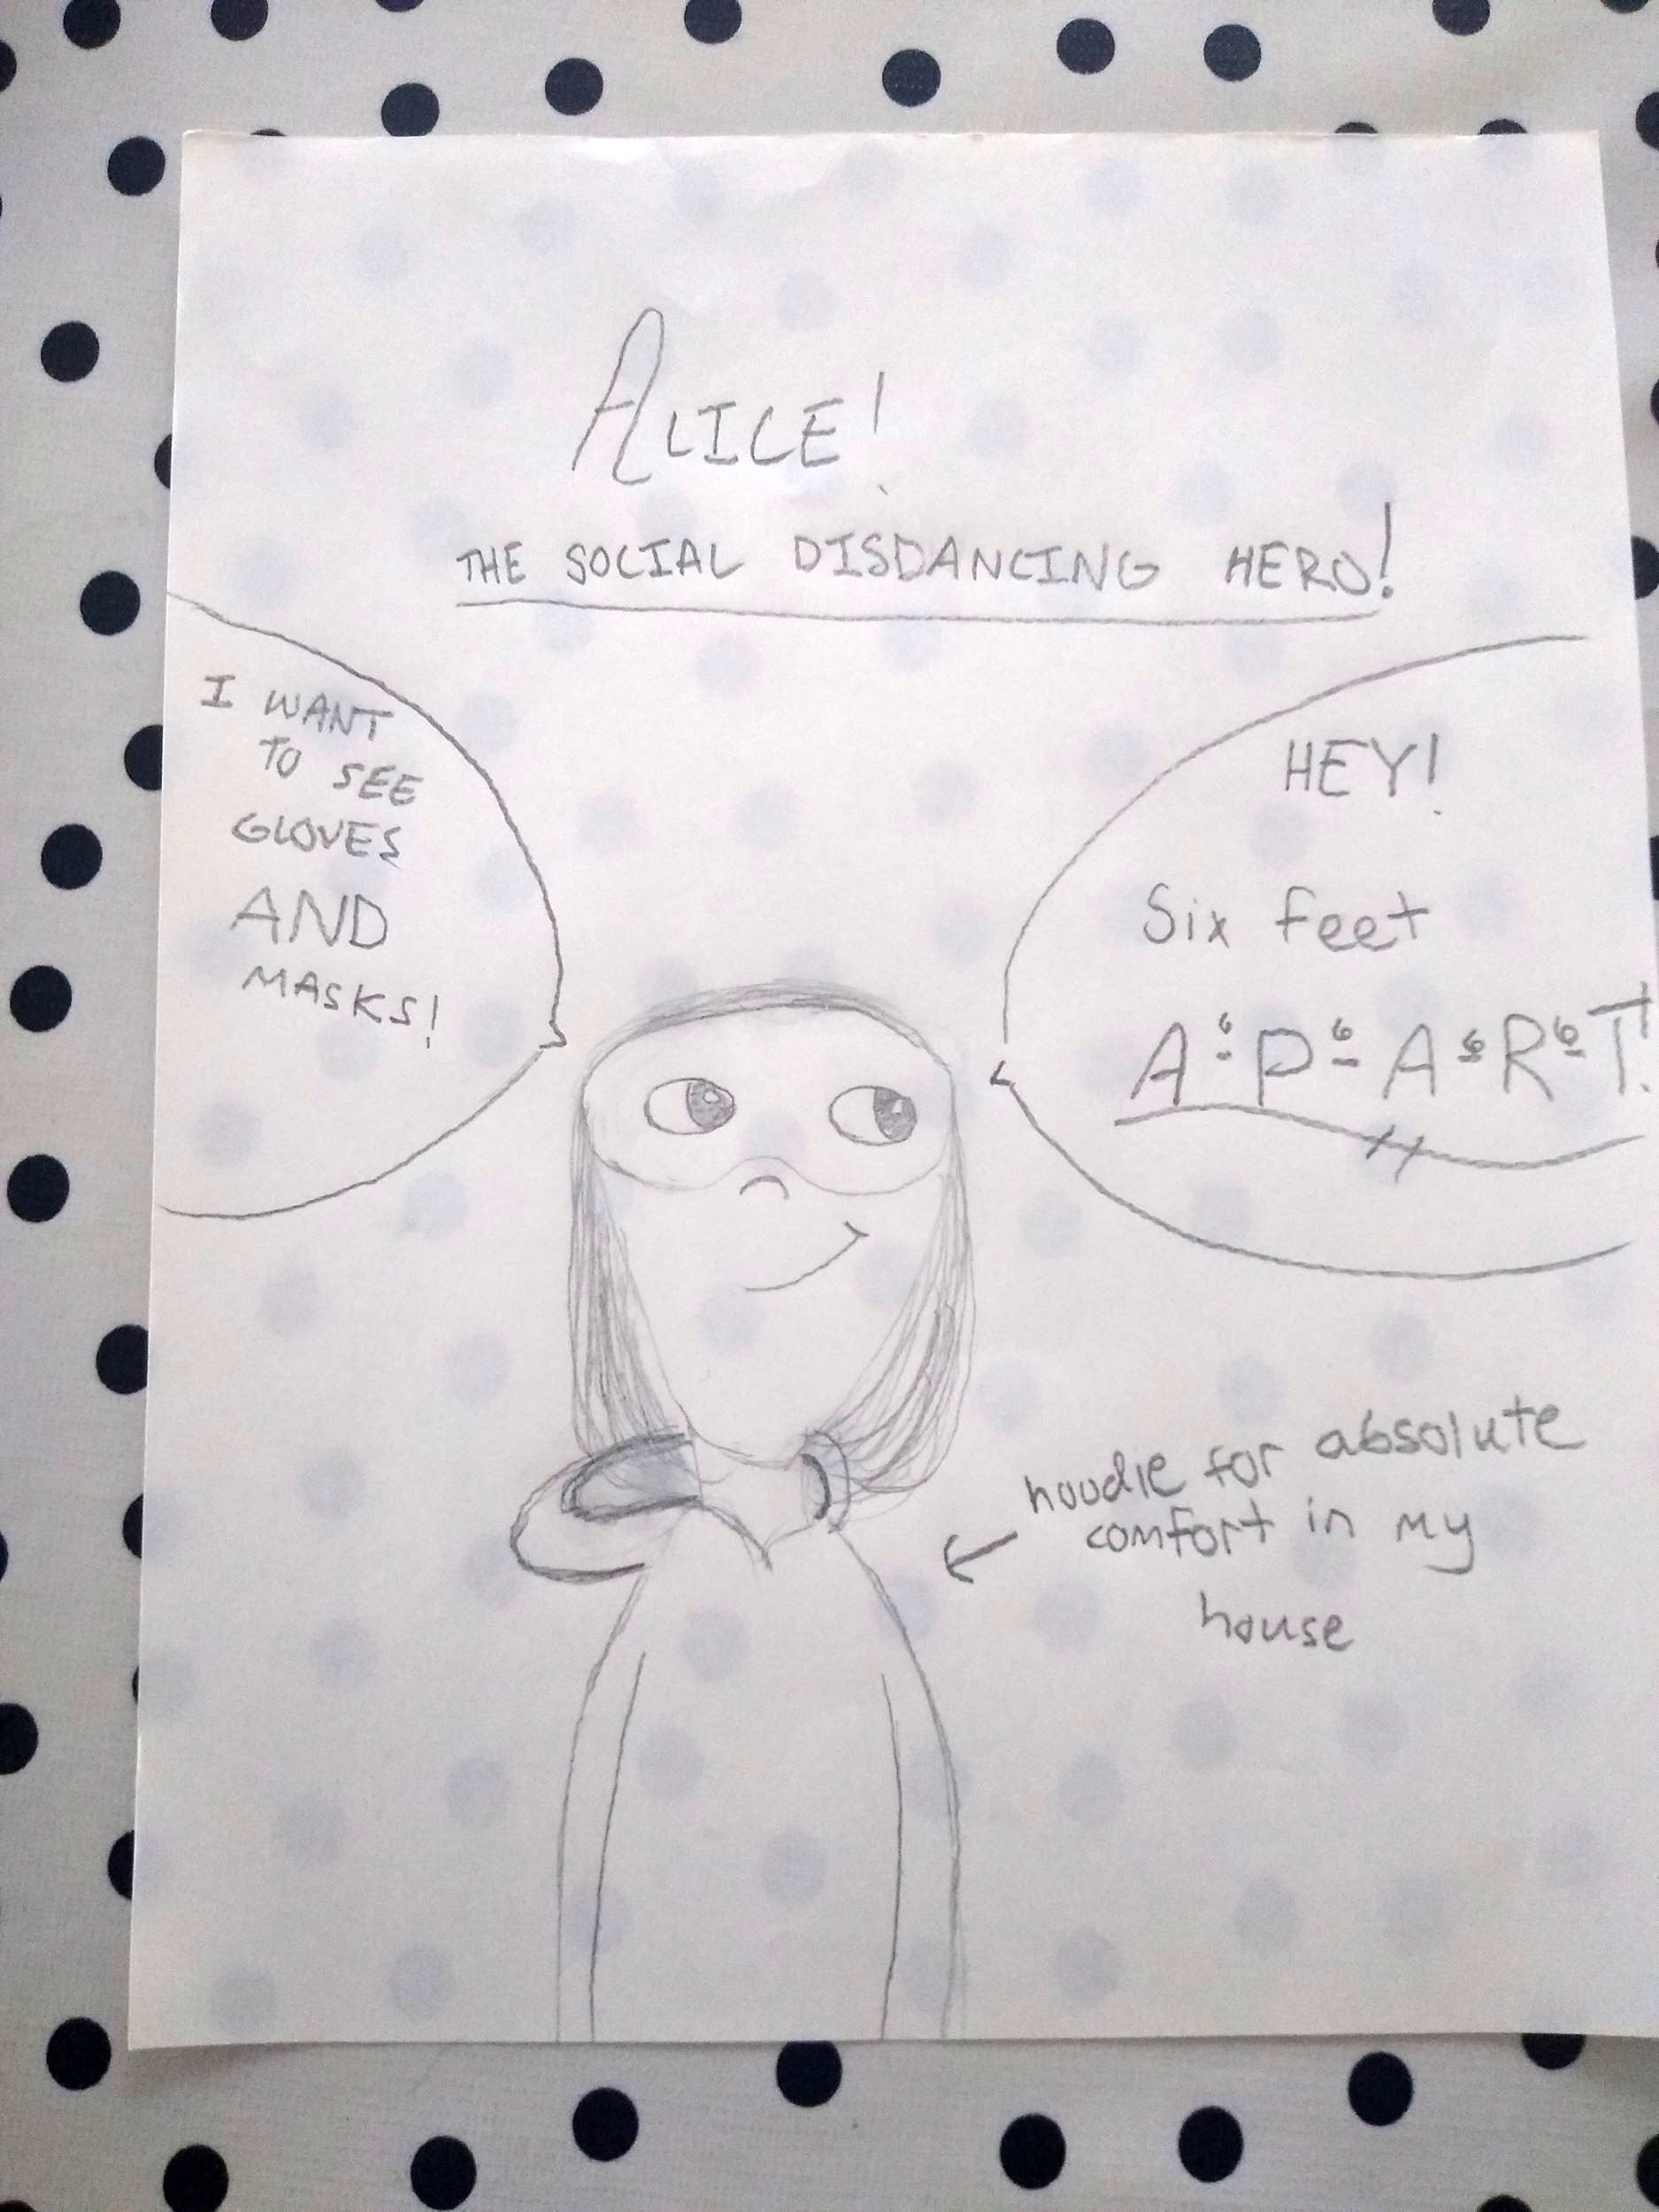 ALICE!
THE SOCIAL DISDANCING HERO!
I WANT
TO SEE
GLOVES
AND
MASKS!
HEY!
Six feet
A 6 P 6 A 6 R 6 T!
hoodie for absolute
comfort in my
house